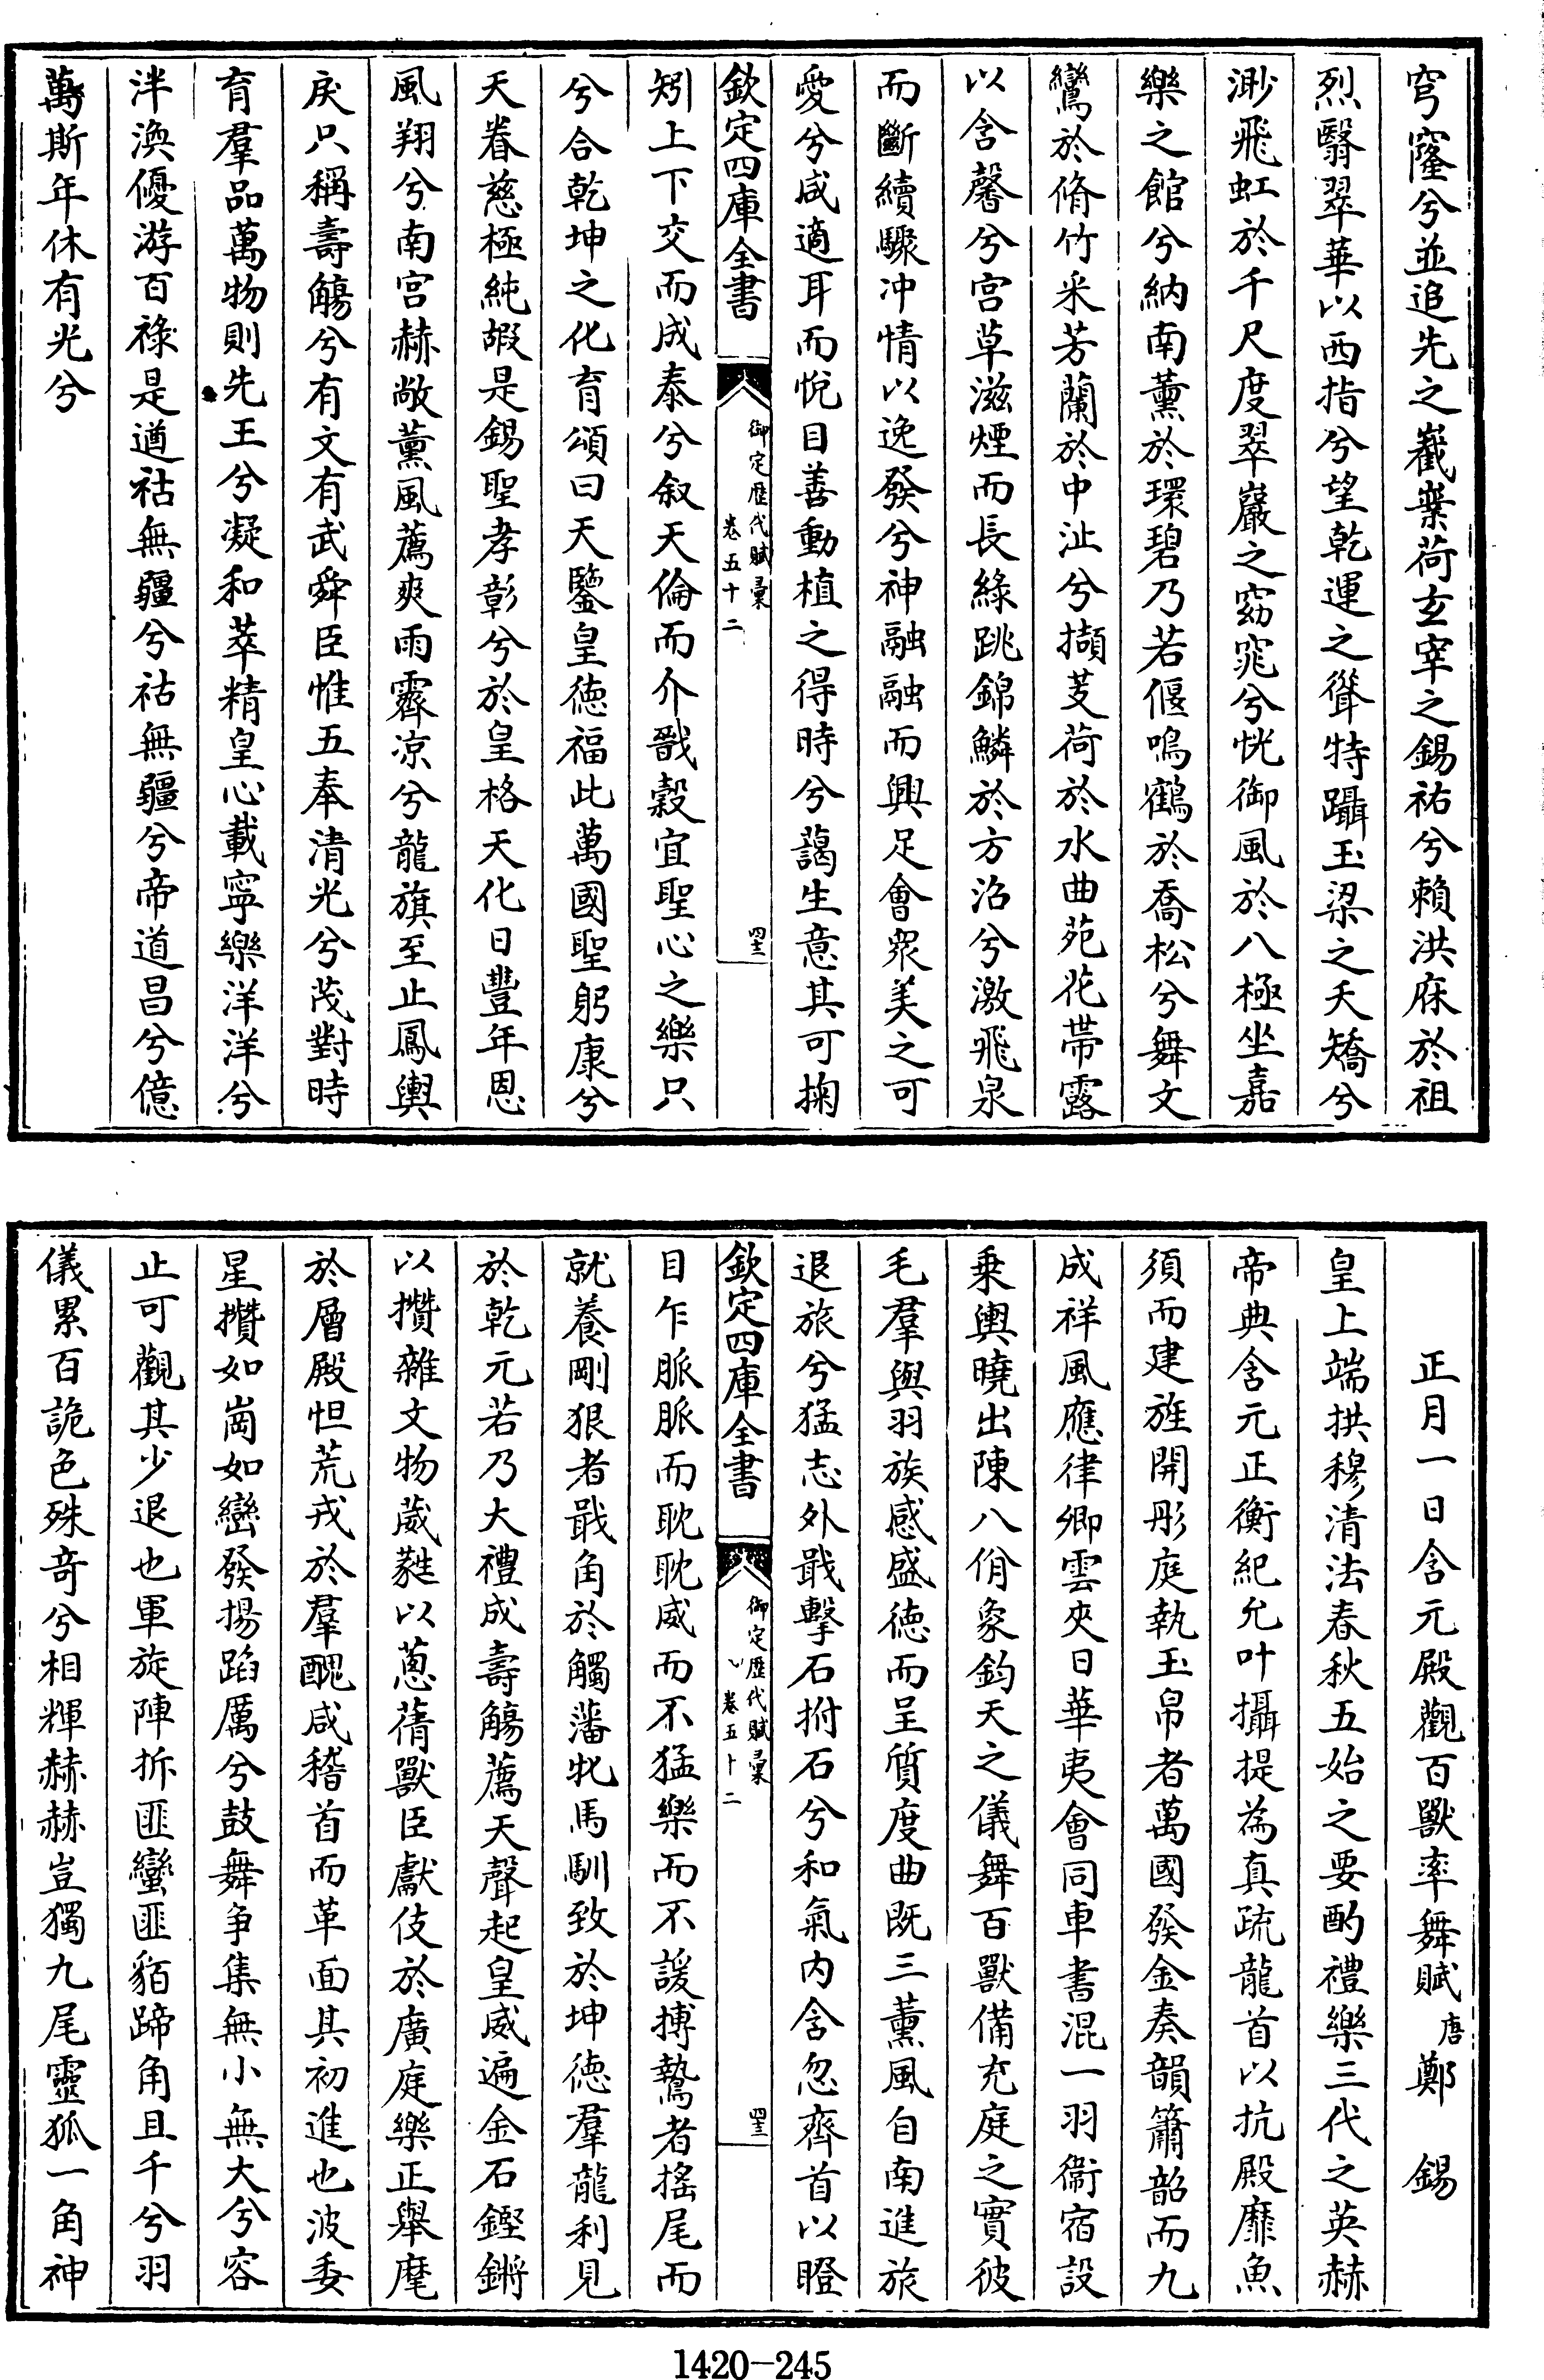 穹窿兮並追先之嶻嶪荷玄宰之錫祐兮賴洪庥於祖
烈翳翠華以西指兮望乾運之聳特躡玉梁之夭矯兮
渺飛虹於千尺度翠巖之窈窕兮恍御風於八極坐嘉
樂之館兮納南薰於環碧乃若偃鳴鶴於喬松兮舞文
鸞於脩竹釆芳蘭於中沚兮擷芰荷於水曲苑花帶露
以含馨兮宮草滋煙而長綠跳錦鱗於方沼兮激飛泉
而斷續驟冲情以逸發兮神融融而興足會衆美之可
愛兮咸適耳而悅目善動植之得時兮藹生意其可掬
欽定四庫全書
御定歷代賦彙
卷五十二
四十二
矧上下交而成泰兮叙天倫而介戩穀宜聖心之樂只
兮合乾坤之化育頌曰天鑒皇德福此萬國聖躬康兮
天眷慈極純嘏是錫聖孝彰兮於皇格天化日豐年恩
風翔兮南宮赫敞薰風薦爽雨霽凉兮龍旗至止鳳輿
戾只稱壽觴兮有文有武舜臣惟五奉清光兮茂對時
育羣品萬物則先王兮凝和萃精皇心載寧樂洋洋兮
泮渙優游百祿是遒祜無疆兮祜無疆兮帝道昌兮億
萬斯年休有光兮
正月一日含元殿觀百獸率舞賦 唐鄭錫
皇上端拱穆清法春秋五始之要酌禮樂三代之英赫
帝典含元正衡紀允叶攝提為真疏龍首以抗殿靡魚
須而建旌開彤庭執玉帛者萬國發金奏韻簫韶而九
成祥風應律卿雲夾日華夷會同車書混一羽衞宿設
乗輿曉出陳八佾象鈞天之儀舞百獸備充庭之實彼
毛羣與羽族感盛德而呈質度曲既三薰風自南進旅
退旅兮猛志外戢擊石拊石兮和氣内含忽齊首以瞪
欽定四庫全書
御定歷代賦彙
卷五十二
四十三
目乍脈脈而耽耽威而不猛樂而不諼搏鷙者搖尾而
就養剛狠者戢角於觸藩牝馬馴致於坤德羣龍利見
於乾元若乃大禮成壽觴薦天聲起皇威遍金石鏗鏘
以攢雜文物葳蕤以蔥蒨獸臣獻伎於廣庭樂正舉麾
於層殿怛荒戎於羣醜咸稽首而革面其初進也波委
星攢如崗如巒發揚蹈厲兮鼓舞爭集無小無大兮容
止可觀其少退也軍旋陣拆匪蠻匪貊蹄角且千兮羽
儀累百詭色殊奇兮相輝赫赫豈獨九尾靈狐一角神
1420-245